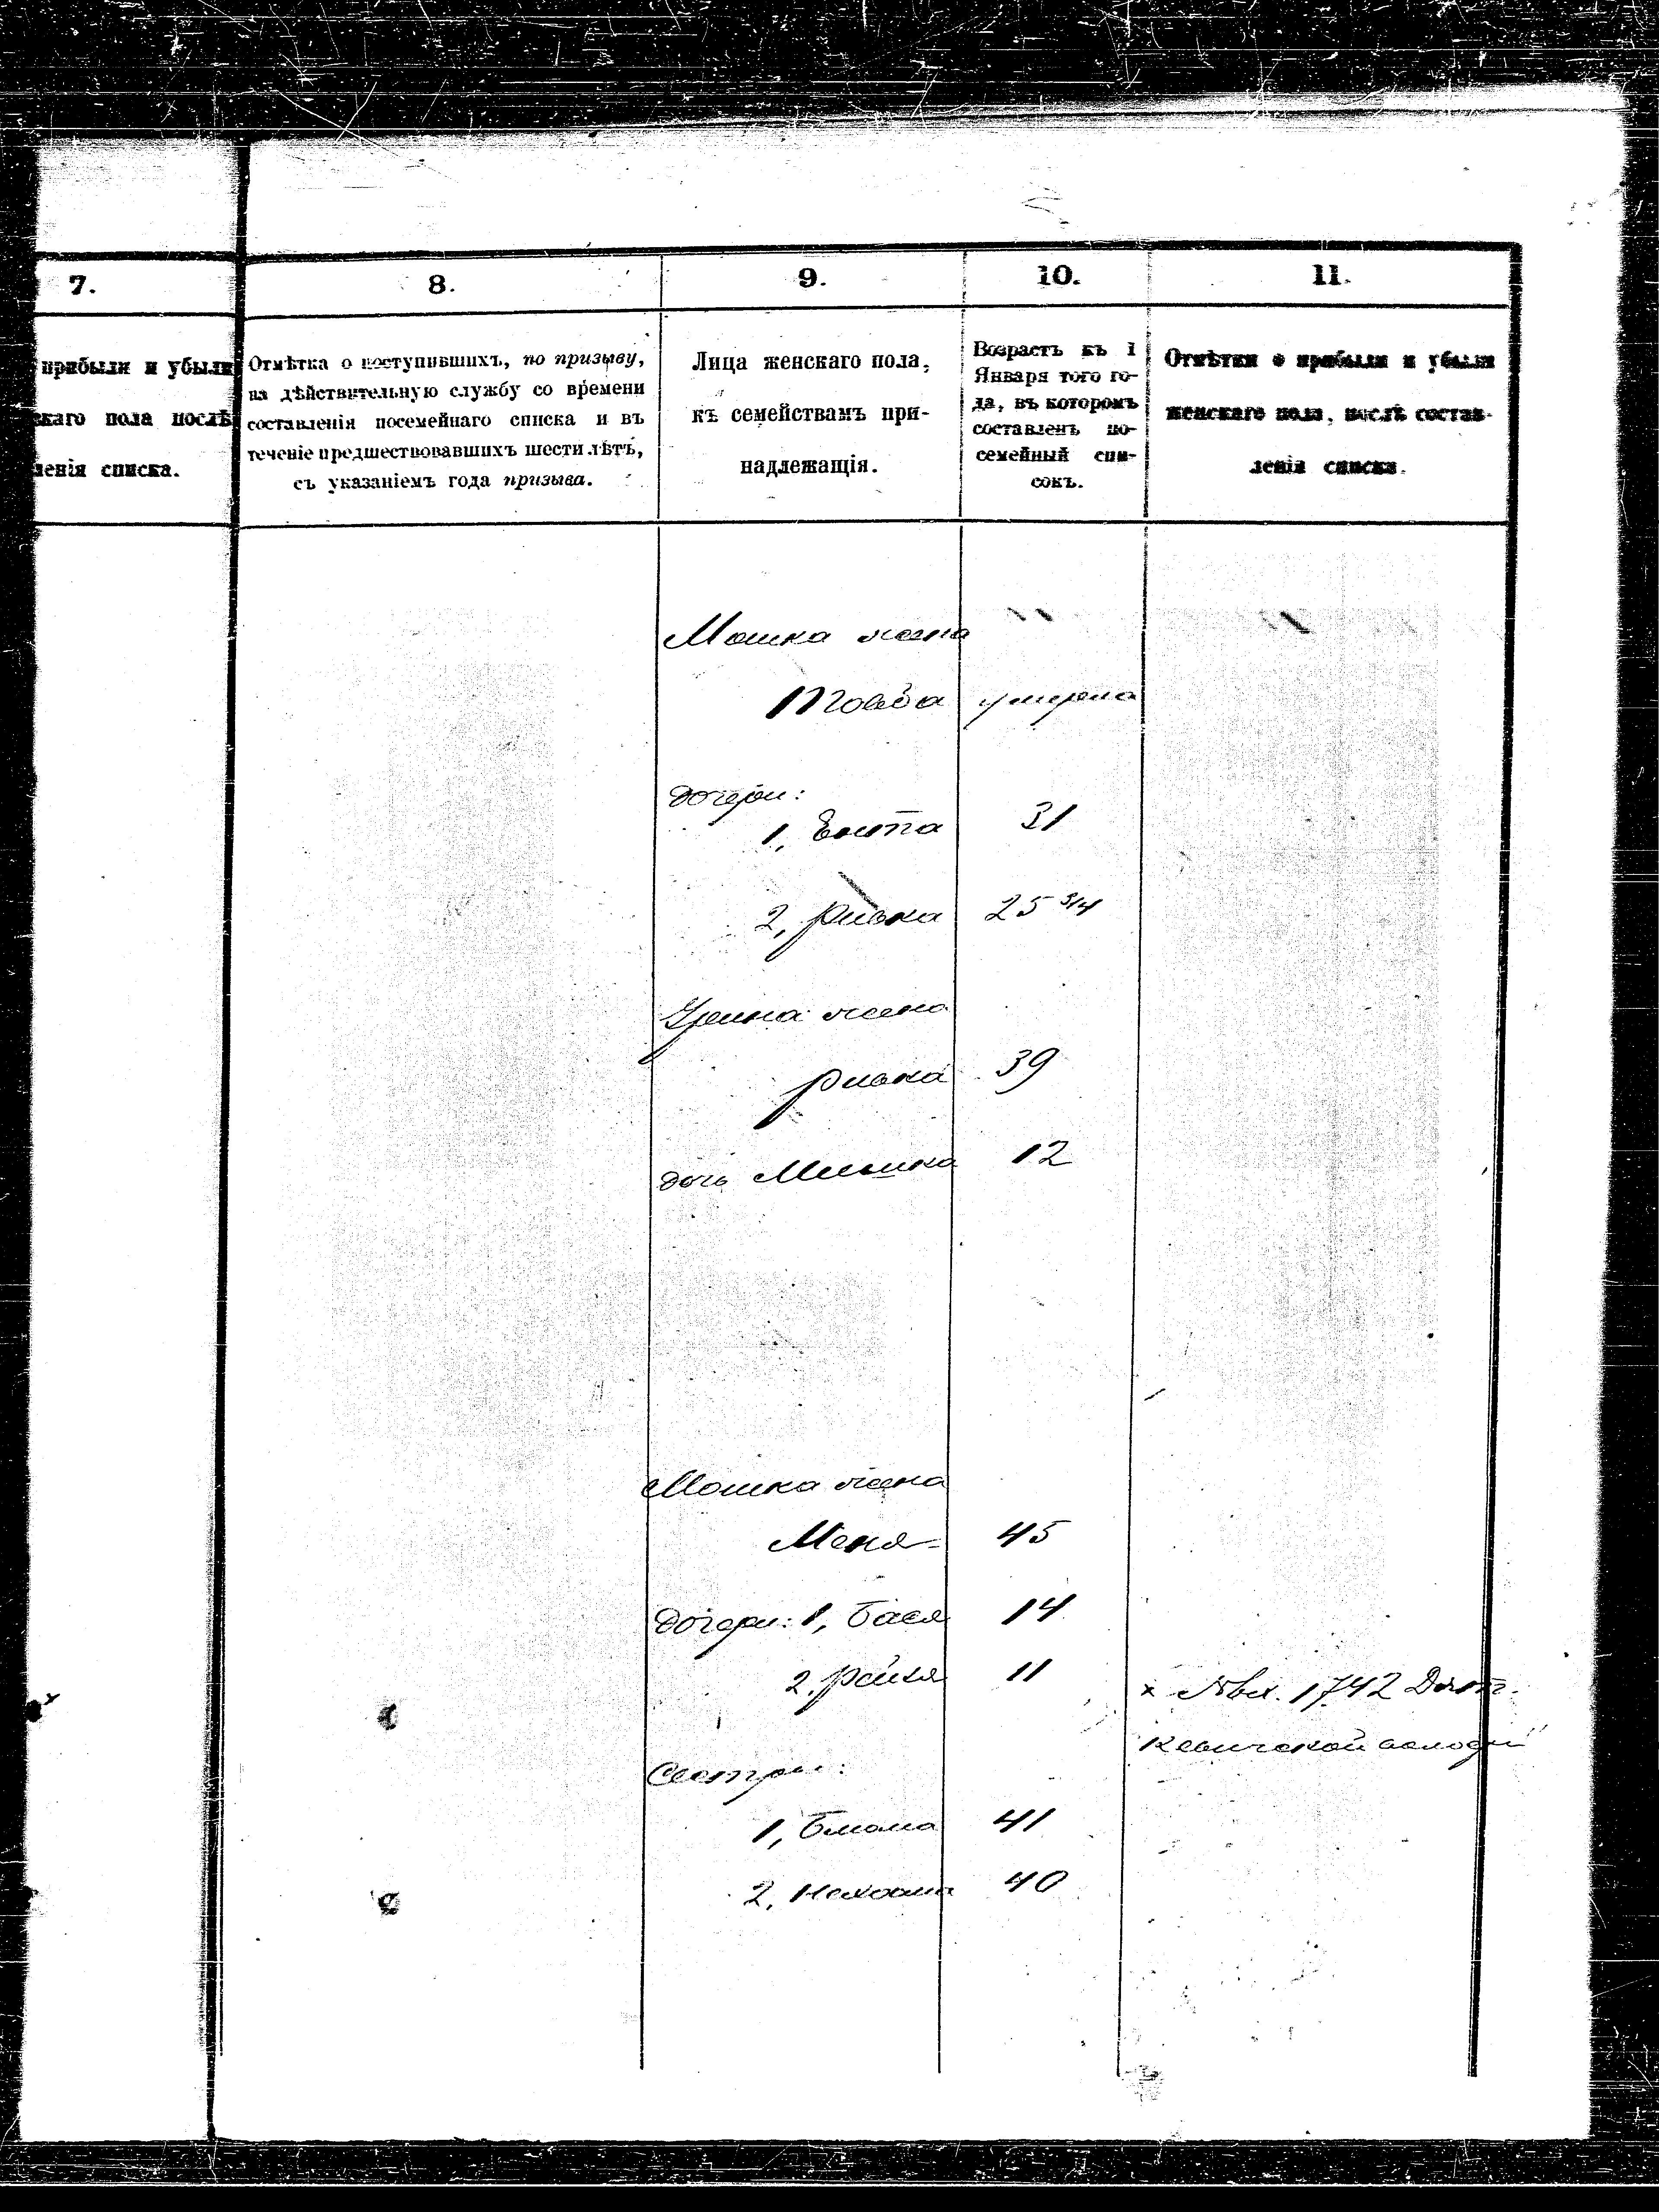 7.
прибыли и убыли
скаго пола послѣ
ленія списка.
8.
Отмѣтка о поступившихъ, по призыву,
на дѣйствительную службу со времени
составленія посемейнаго списка и въ
теченіе предшествовавшихъ шести лѣтъ,
съ указаніемъ года призыва.
9.
Лица женскаго пола,
къ семействамъ при-
надлежащія.
10.
Возрастъ къ 1
Января того го-
да, въ которомъ
составленъ по-
семейный спи-
сокъ.
11.
Отмѣтки о прибыли и убыли
женскаго пола, послѣ состав-
ленія списка.
Мошка жена
Товба умерла
дочери:
1, Ента 31
2, Ривка 25 3/4
жена
Ривка 39
дочь 12
Мошка жена
Меня 45
Дочери: 1, Бася 14
2. Рейзя 11
х № вх. 1742
Сестры:
1, Блюма 41
2, Нехама 40